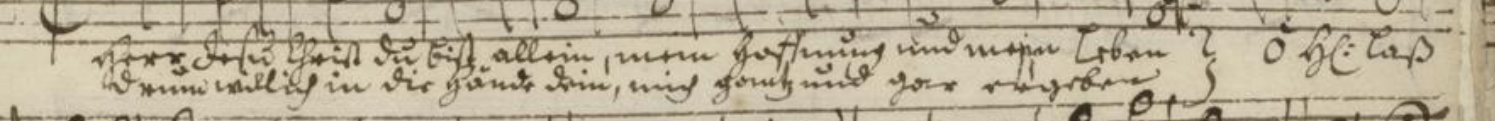 Herr Jesu Christ du bist allein, mein Hoffnung und mein Leben O H: laß
Drum will ich in die Hände dein, mich gantz und gar ergeben